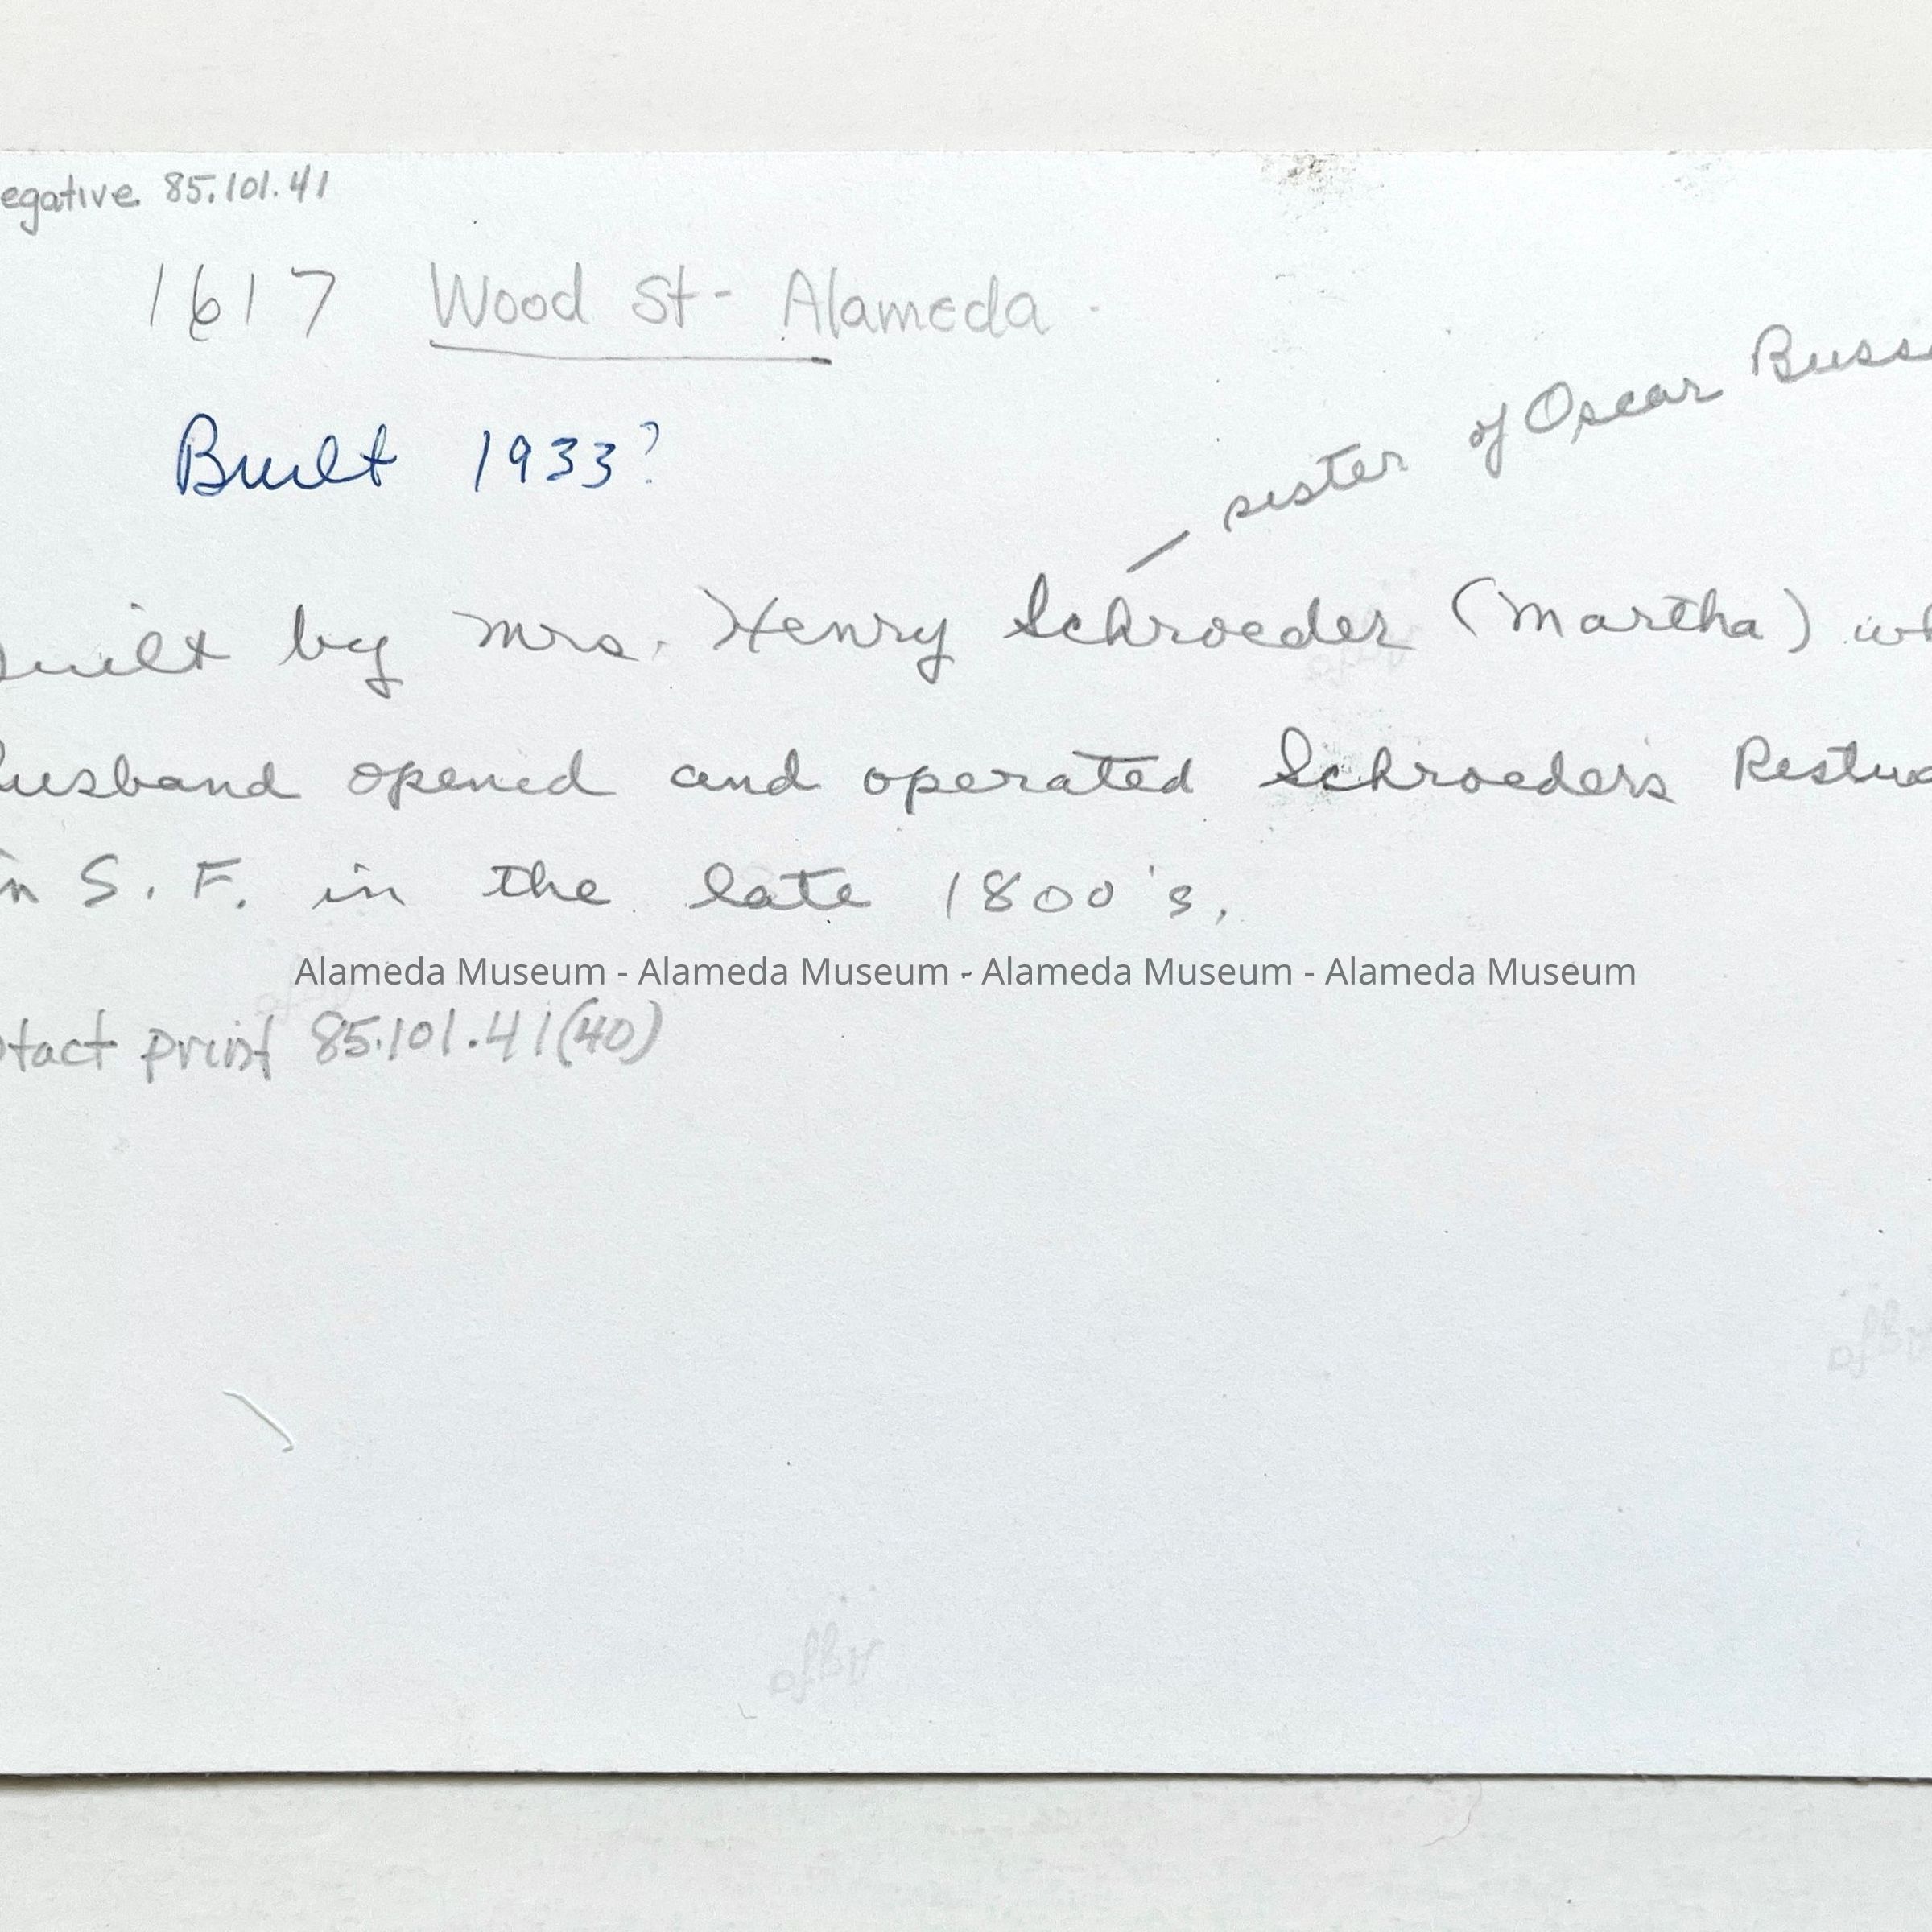 egative 85.101.41
1617 Wood St - Alameda -
Built 1933?
sister of Oscar Buss
built by Mrs. Henry Schroeder (Martha) wh
husband opened and operated Schroeders Restua
in S. F. in the late 1800's.
Alameda Museum - Alameda Museum - Alameda Museum - Alameda Museum
ntact print 85.101.41(40)
Agfa
Agfa